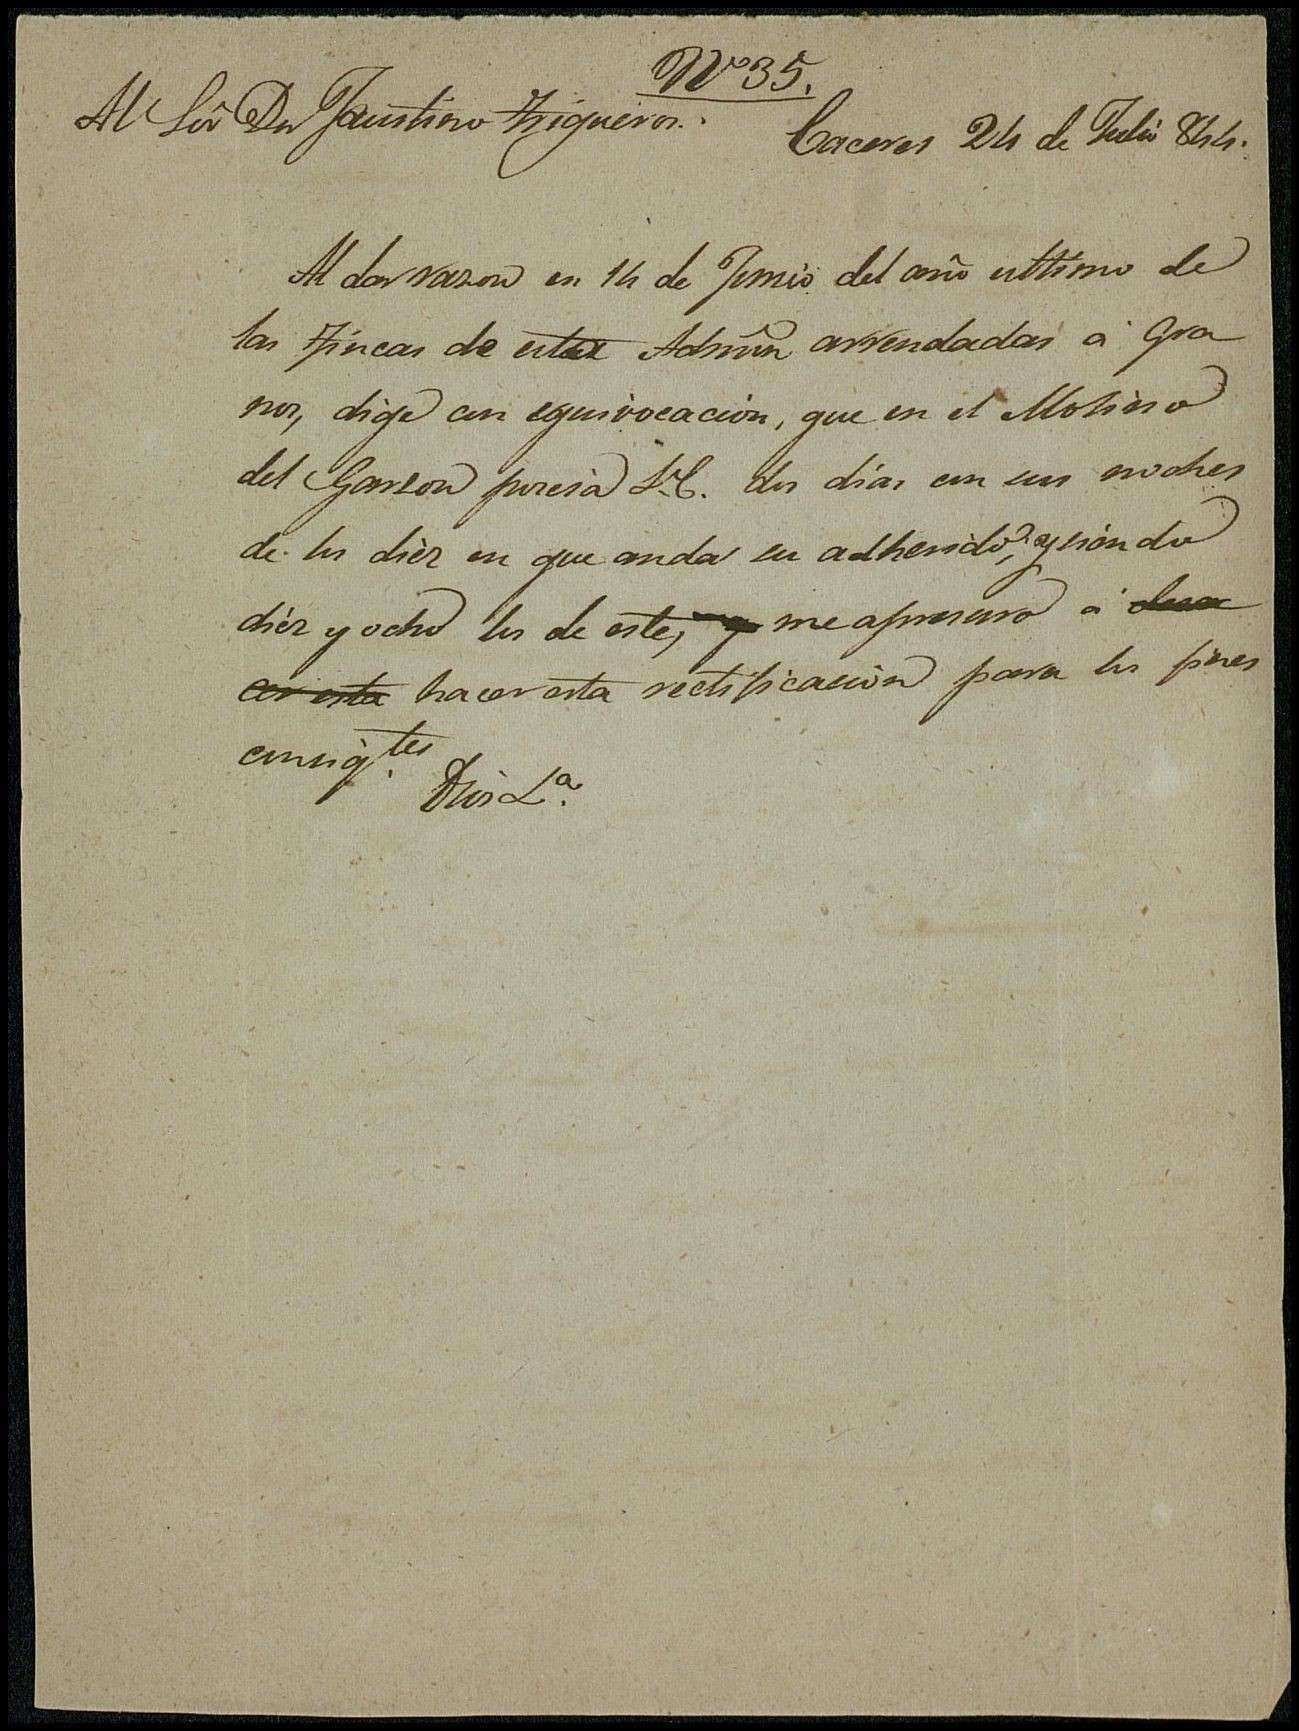 Nº 35.
Al Sôr Dn Faustino Trigueros.
Caceres 24 de Julio 844.
Al dar razon en 14 de Junio del año ultimo de
las Fincas de esta Admôn arrendadas á Gra
nos, dige con equivocacion, que en el Molino
del Garzon poseia S.E. dos dias con sus noches
de los diéz en que anda su adherido, y siendo
diéz y ocho los de este, y me apresuro á
cer esta hacer esta rectificacion para los fines
consig.tes
Dios L.ª